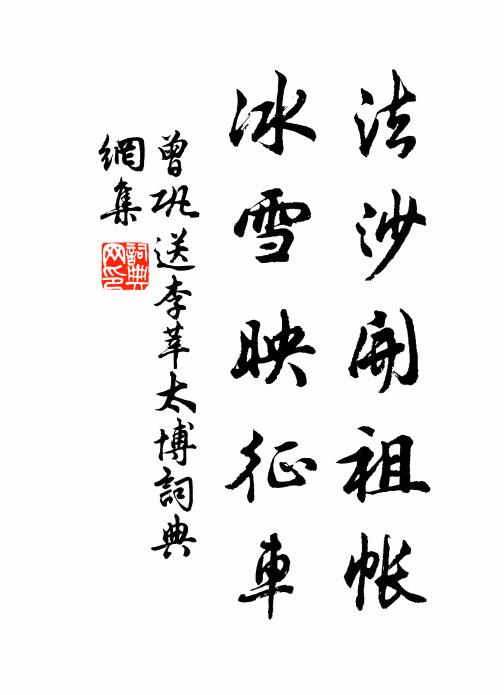 法沙開祖帳
冰雪映征車
曾巩送李莘太博詞典
網集
詞典網印